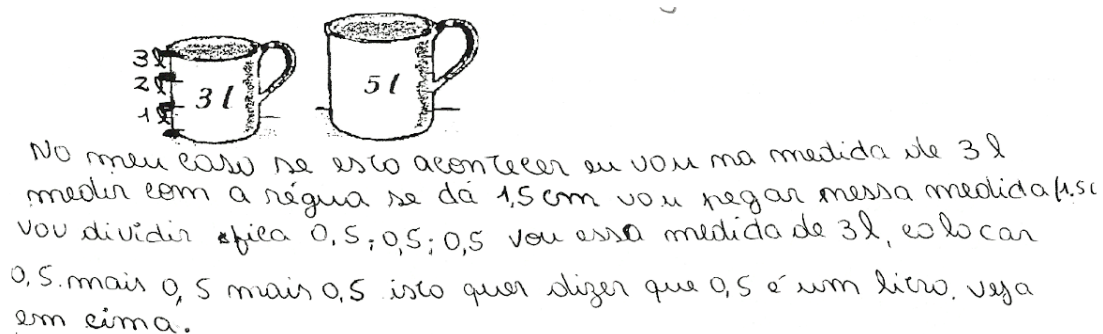 3l
2l
1l
3 l
5 l
No meu caso se isto acontecer eu vou na medida de 3 l
medir com a régua se dá 1,5 cm vou pegar nessa medida (1.5c
vou dividir fica 0,5; 0,5; 0,5 vou essa medida de 3l, colocar
0,5 mais 0,5 mais 0,5 isto quer dizer que 0,5 é um litro. veja
em cima.